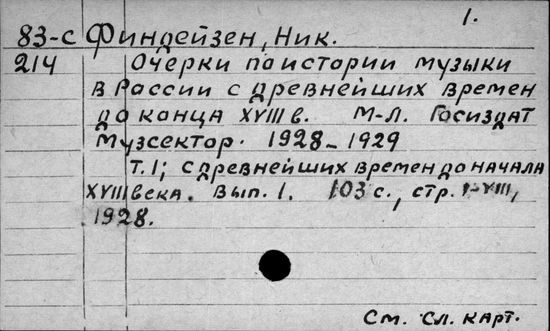 1.
83-с Финдейзен, Ник.
214 Очерки по истории музыки
в России с древнейших времен
до конца XVIII в. М-Л. Госиздат
Музсектор. 1928-1929
Т.I; с древнейших времен до начала
XVIII века. Вып. I. 103 с., стр. I-VIII,
1928.
См. сл. карт.